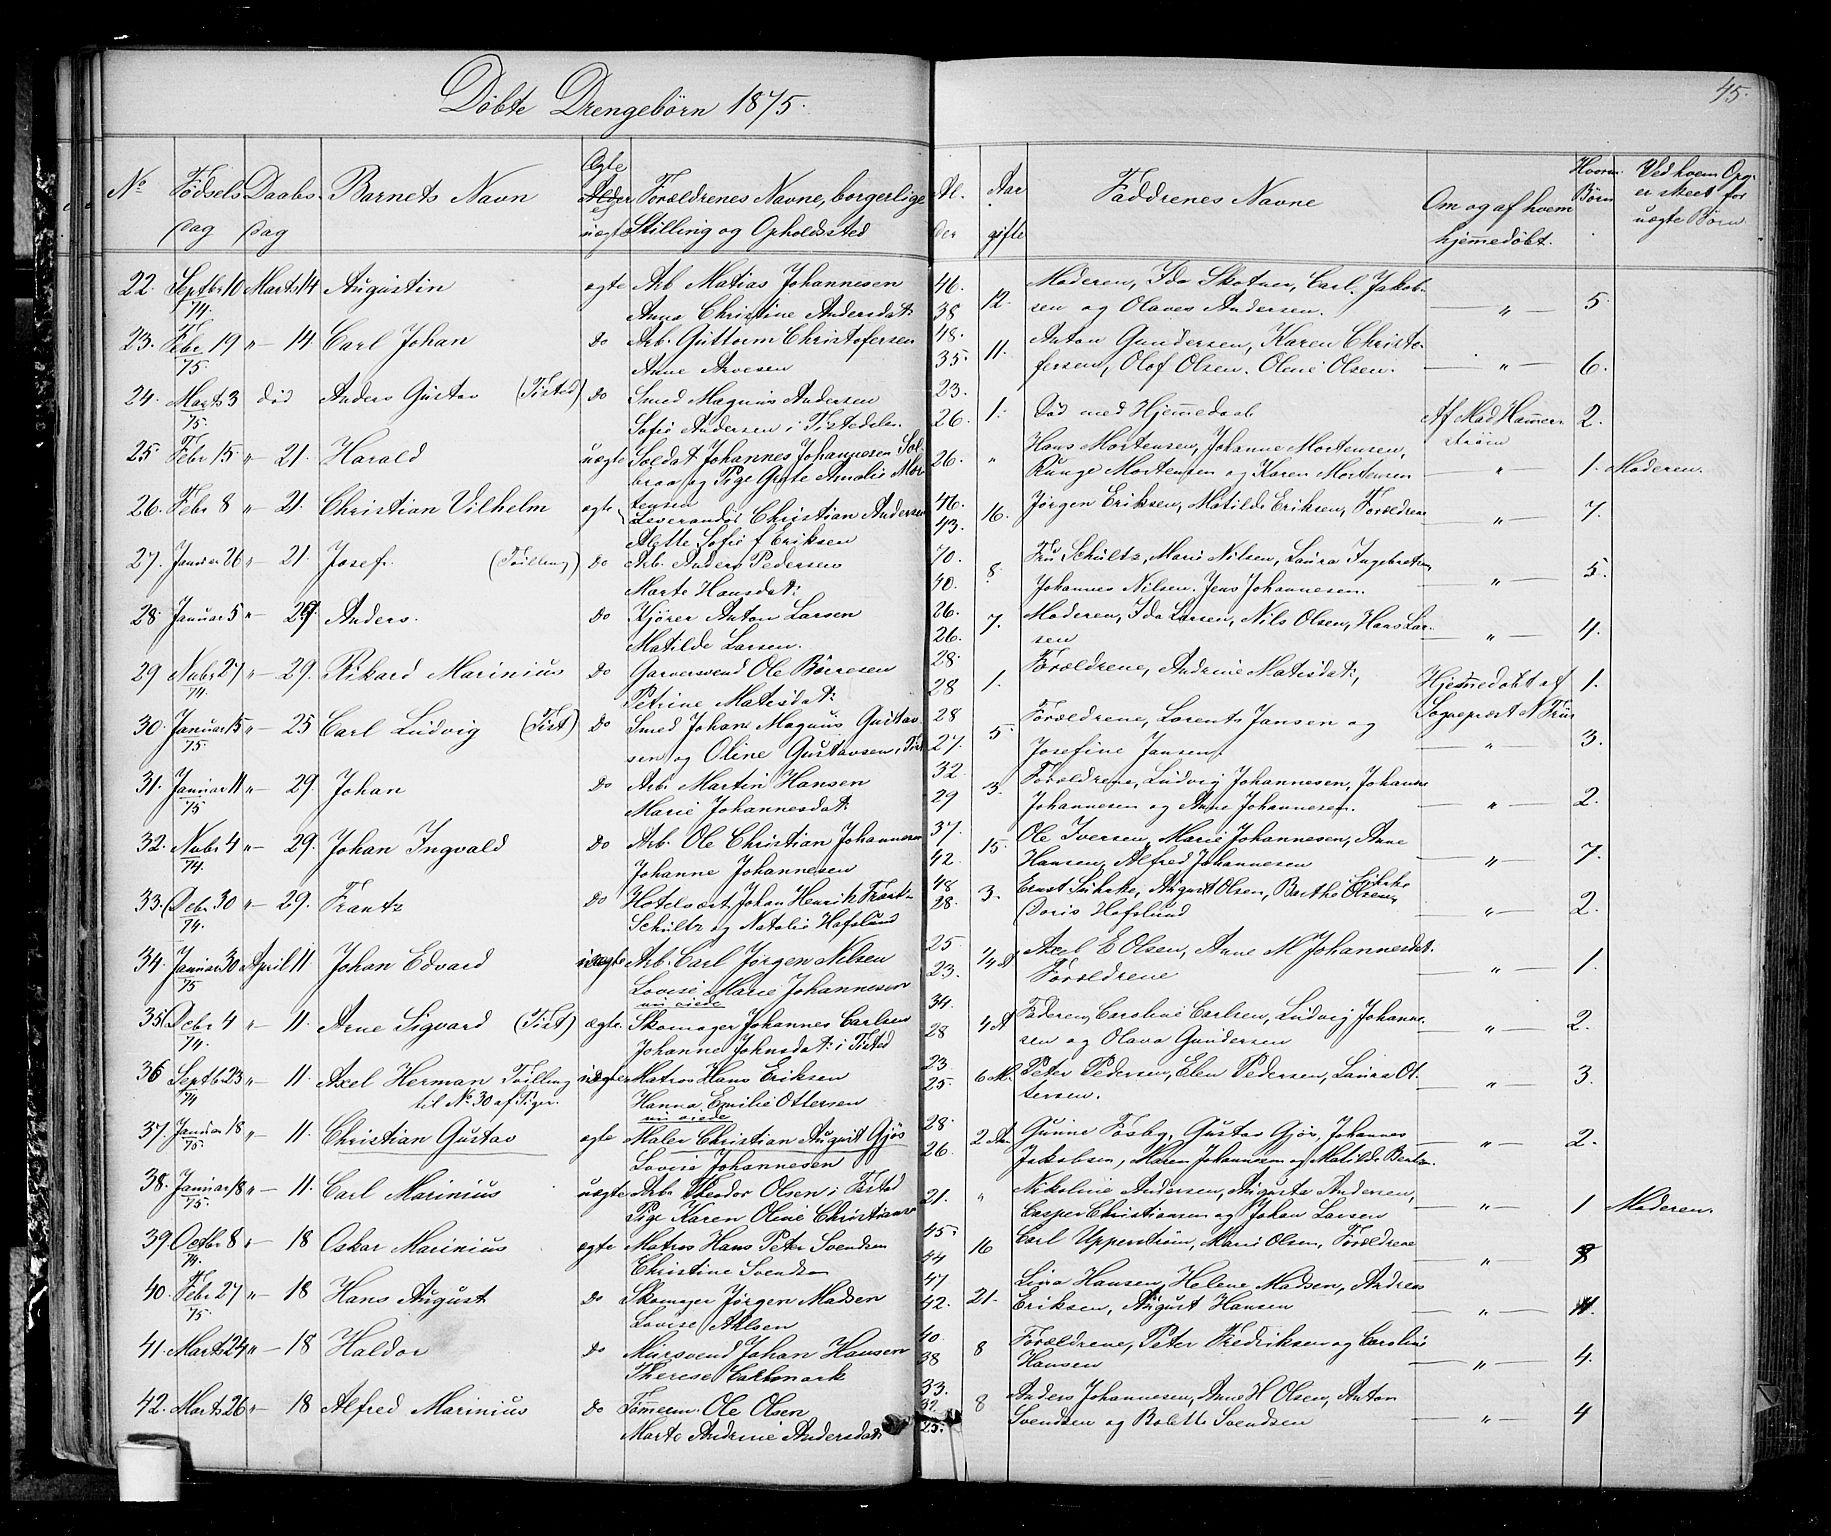 Døbte Drengebørn 1875.
45.
No Fødsels Dag Daabs Dag Barnets Navn Ægte eller uægte Forældrenes Navne, borgerlige Stilling og Opholdssted Al. der Aar gifte Faddrenes Navne Om og af hvem hjemmedøbt. Børn Ved hvem er skeet for uægte Børn
22. Septbr 10 74. Marts 14 Augustin ægte Arb Matias Johannesen 46. 12. Moderen, Ida Skotner, Carl Jakob- — „ — 5
Anna Christine Andersdat: 38 sen og Olaves Andersen.
23. Febr 19 75. „ — 14 Carl Johan Do Arb. Guttorm Christofersen 48. 11. Anton Gundersen, Karen Christo- — „ — 6.
Anne Arvesen 35. fersen, Olof Olsen. Oline Olsen.
24. Marts 3 75. død Anders Gustav (Tisted) Do Smed Magnus Andersen 23. 1. Død med Hjemmedaab Af Mad Hammer- 2.
Sofie Andersen i Tistedalen. 26. strøm
25 Febr 15 „ — 21. Harald uægte Soldat Johannes Johannesen Sol- 26. „ Hans Mortensen, Johanne Mortensen, „ 1. Moderen.
braa og Pige Grete Amalie Mor- Runge Mortensen og Karen Mortensen
tensen
26. Febr 8 „ — 21. Christian Vilhelm ægte Leverandør Christian Andersen 46. 16. Jørgen Eriksen, Matilde Eriksen, Forældrene „ 7.
Alette Sofie f Eriksen 43.
27. Januar 26 „ — 21. Josef. (Tvilling) Do Arb. Anders Pedersen 70. 8. Fru Schultz, Marie Nilsen, Laura Ingebretsen, — „ — 5.
Marte Hansdat: 40. Johannes Nilsen. Jens Johannesen.
28. Januar 5 „ — 29 Anders. Do Kjører Anton Larsen 26. 7. Moderen, Ida Larsen, Nils Olsen, Hans Lar- — „ — 4.
Matilde Larsen. 26. sen
29 Nobr 27 74. „ — 29. Rikard Marinius Do Garversvend Ole Børresen 28. 1. Forældrene, Andrine Matisdat:, Hjemmedøbt af 1.
Petrine Matisdat: 28 Sogneprest N Friis
30. Januar 15 75. „ — 25 Carl Ludvig (Tist) Do Smed Johan Magnus Gustav- 28 5 Forældrene, Lorents Jansen og — „ — 3.
sen og Oline Gustavsen i Tist 27. Josefine Jansen.
31. Januar 11 75 „ — 29. Johan Do Arb. Martin Hansen 32. 3. Forældrene, Ludvig Johannesen, Johanne — „ — 2.
Marie Johannesdat: 29 Johannesen og Anne Johannesen.
32. Nobr 4 74. „ — 29. Johan Ingvald Do Arb. Ole Christian Johannesen 37. 15. Ole Iversen, Marie Johannesen, Anne — „ — 7.
Johanne Johannesen 42. Hansen, Alfred Johannesen
33. Debr 30 74. „ — 29. Frantz Do Hotelvært Johan Henrik Frantz 48 3. August Olsen, Barthe Olsen, — „ — 2.
Schultz og Natalie Hafslund 28. Doris Hafslund
34. Januar 30 75 April 11 Johan Edvard Arb. Carl Jørgen Nilsen 25. Axel E Olsen, Anne M Johannesdat. — „ — 1.
Lovise Marie Johannesen 23. Forældrene
35. Debr 4 74. „ — 11. Arne Sigvard (Tist) ægte. Skomager Johannes Carlsen 34. 4 A Faderen, Caroline Carlsen, Ludvig Johanne- — „ — 2.
Johanne Johnsdat: i Tisted 28 sen og Olava Gundersen
36 Septbr 23 74 „ — 11. Axel Herman Tvilling Matros Hans Eriksen 23 Peter Pedersen, Elen Pedersen, Laura Ot- — „ — 3.
til No 30 af Piger. Hanna Emilie Ottersen 25. tersen.
37. Januar 18 75. „ — 11. Christian Gustav ægte Maler Christian August Gjøs 28. Gunne Fosby, Gustav Gjør, Johannes — „ — 2.
Lovise Johannesen 26. Jakobsen, Maren Johannesen og Matilde
38. Januar 18 75. „ — 11. Carl Marinius uægte Arb. Theodor Olsen i Tisted 21. „ Nikoline Andersen, Augusta Andersen, — „ — 1 Moderen.
Pige Karen Oline Christians Casper Christiansen og Johan Larsen
39. Octbr 8 74. „ — 18 Oskar Marinius ægte Matros Hans Peter Svendsen 45. 16 Carl Upperstrøm, Marie Olsen, Forældrene — „ — 8
Christine Svendsen 44
40. Febr 27 75. „ — 18 Hans August Do Skomager Jørgen Madsen 47 21. Lina Hansen, Helene Madsen, Andreas — „ —
Lovise Ahlsen 42. Eriksen, August Hansen
41. Marts 24 „ — 18 Haldor Do Mursvend Johan Hansen 40. 8 Forældrene, Peter Fredriksen og Caroline — „ — 4.
Therese 38 Hansen
42. Marts 26 „ — 18 Alfred Marinius Do Tømerm. Ole Olsen 33. 8 Anders Johannesen, Anne H Olsen, Anton — „ — 4
Marte Andrine Andersdat: 32. 25. Svendsen og Bolette Svendsen